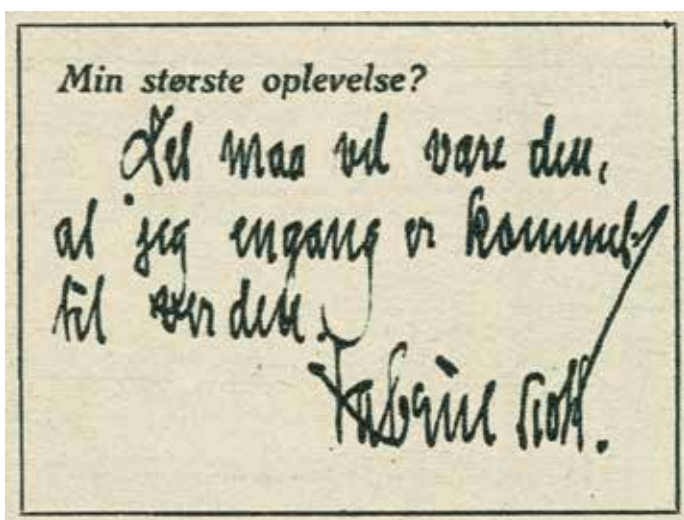 Min største oplevelse?
Det maa vel være den,
at jeg engang er kommet
til verden.